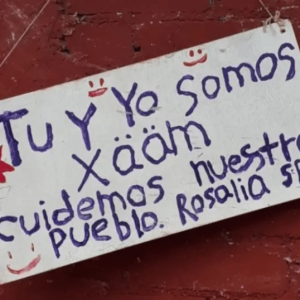 Tu y Yo somos
xääm
cuidemos nuestro
pueblo. Rosalia S.